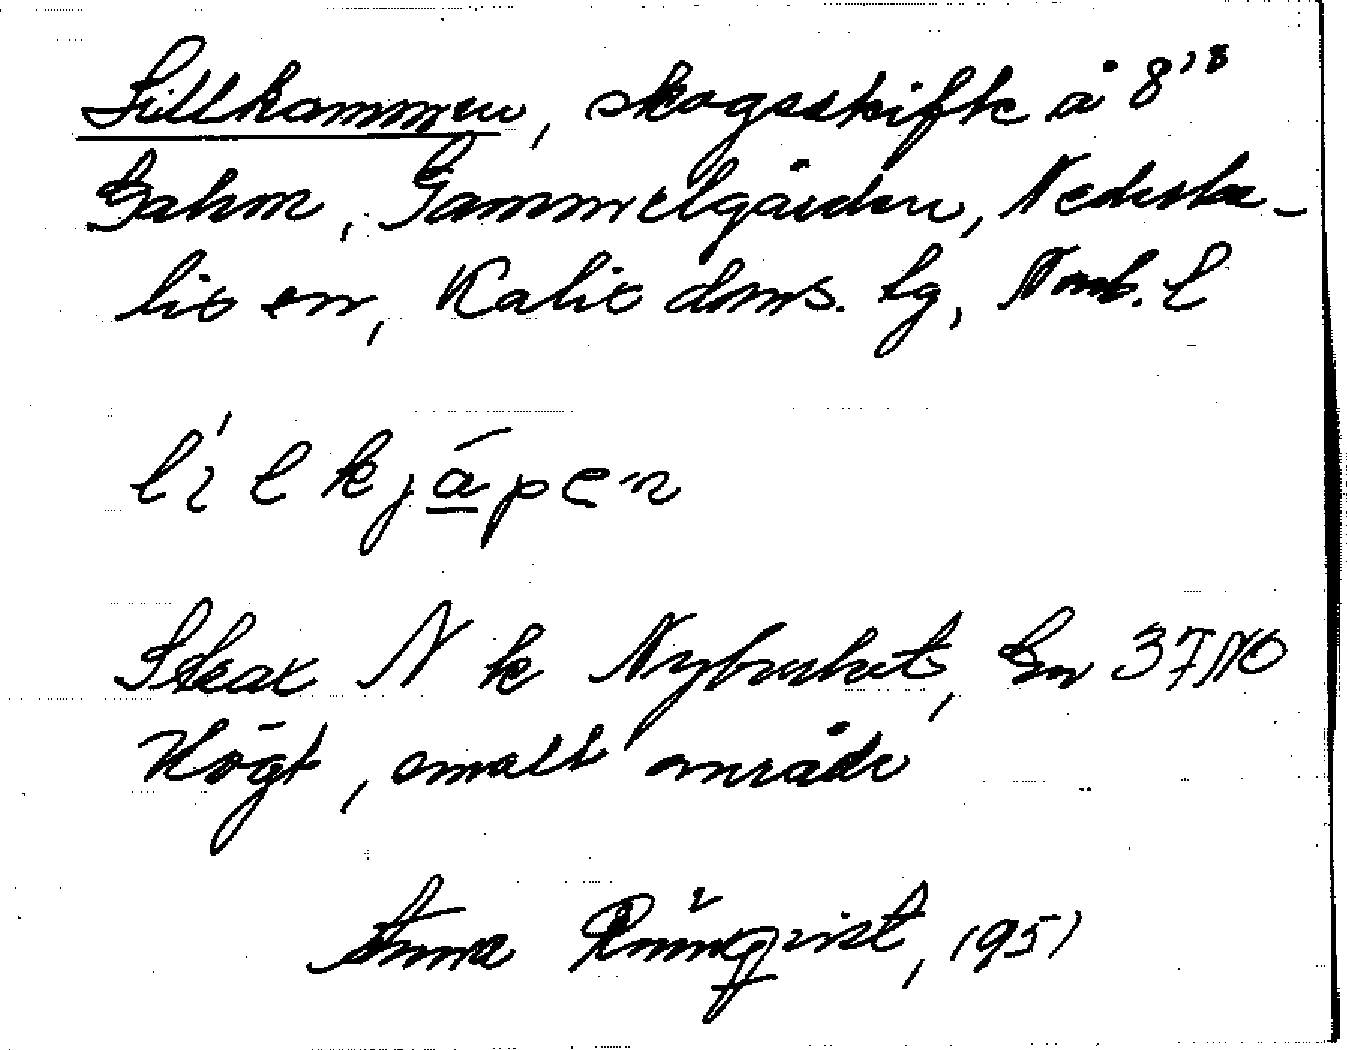 Lillkammen, skogsskifte å 8¹⁸
Bahm, Gammelgården, Nederka-
lix sn, Kalix doms. lg, Norrb. l
li'lkjápen
Strax N k Nybrukat, Bn 37NO
Högt, smalt område
Anna Rönnqvist, 1951